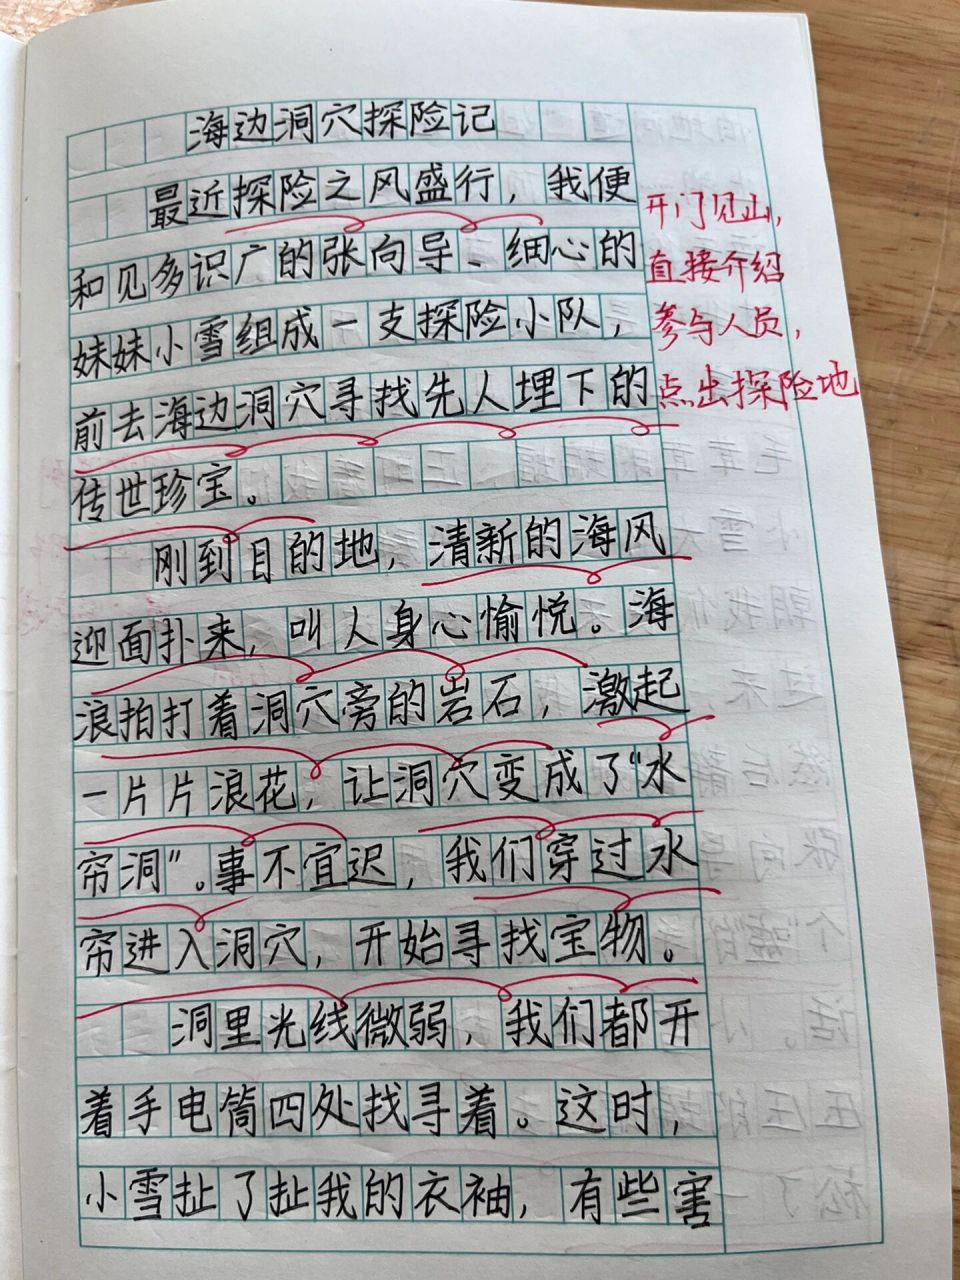 海边洞穴探险记
最近探险之风盛行，我便
和见多识广的张向导、细心的
妹妹小雪组成一支探险小队，
前去海边洞穴寻找先人埋下的
传世珍宝。
刚到目的地，清新的海风
迎面扑来，叫人身心愉悦。海
浪拍打着洞穴旁的岩石，激起
一片片浪花，让洞穴变成了“水
帘洞”。事不宜迟，我们穿过水
帘进入洞穴，开始寻找宝物。
洞里光线微弱，我们都开
着手电筒四处找寻着。这时，
小雪扯了扯我的衣袖，有些害
开门见山，
直接介绍
参与人员，
点出探险地